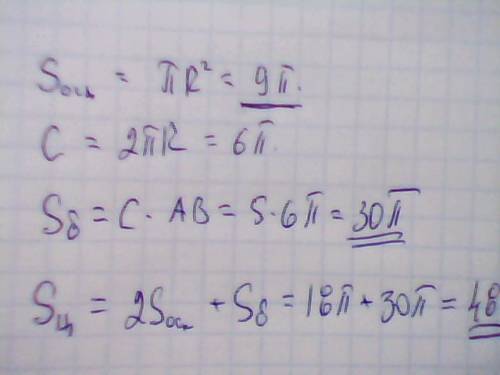 Sосн = πR² = 9π.
C = 2πR = 6π.
Sб = C · AB = 5·6π = 30π
Sц = 2Sосн + Sб = 18π + 30π = 48